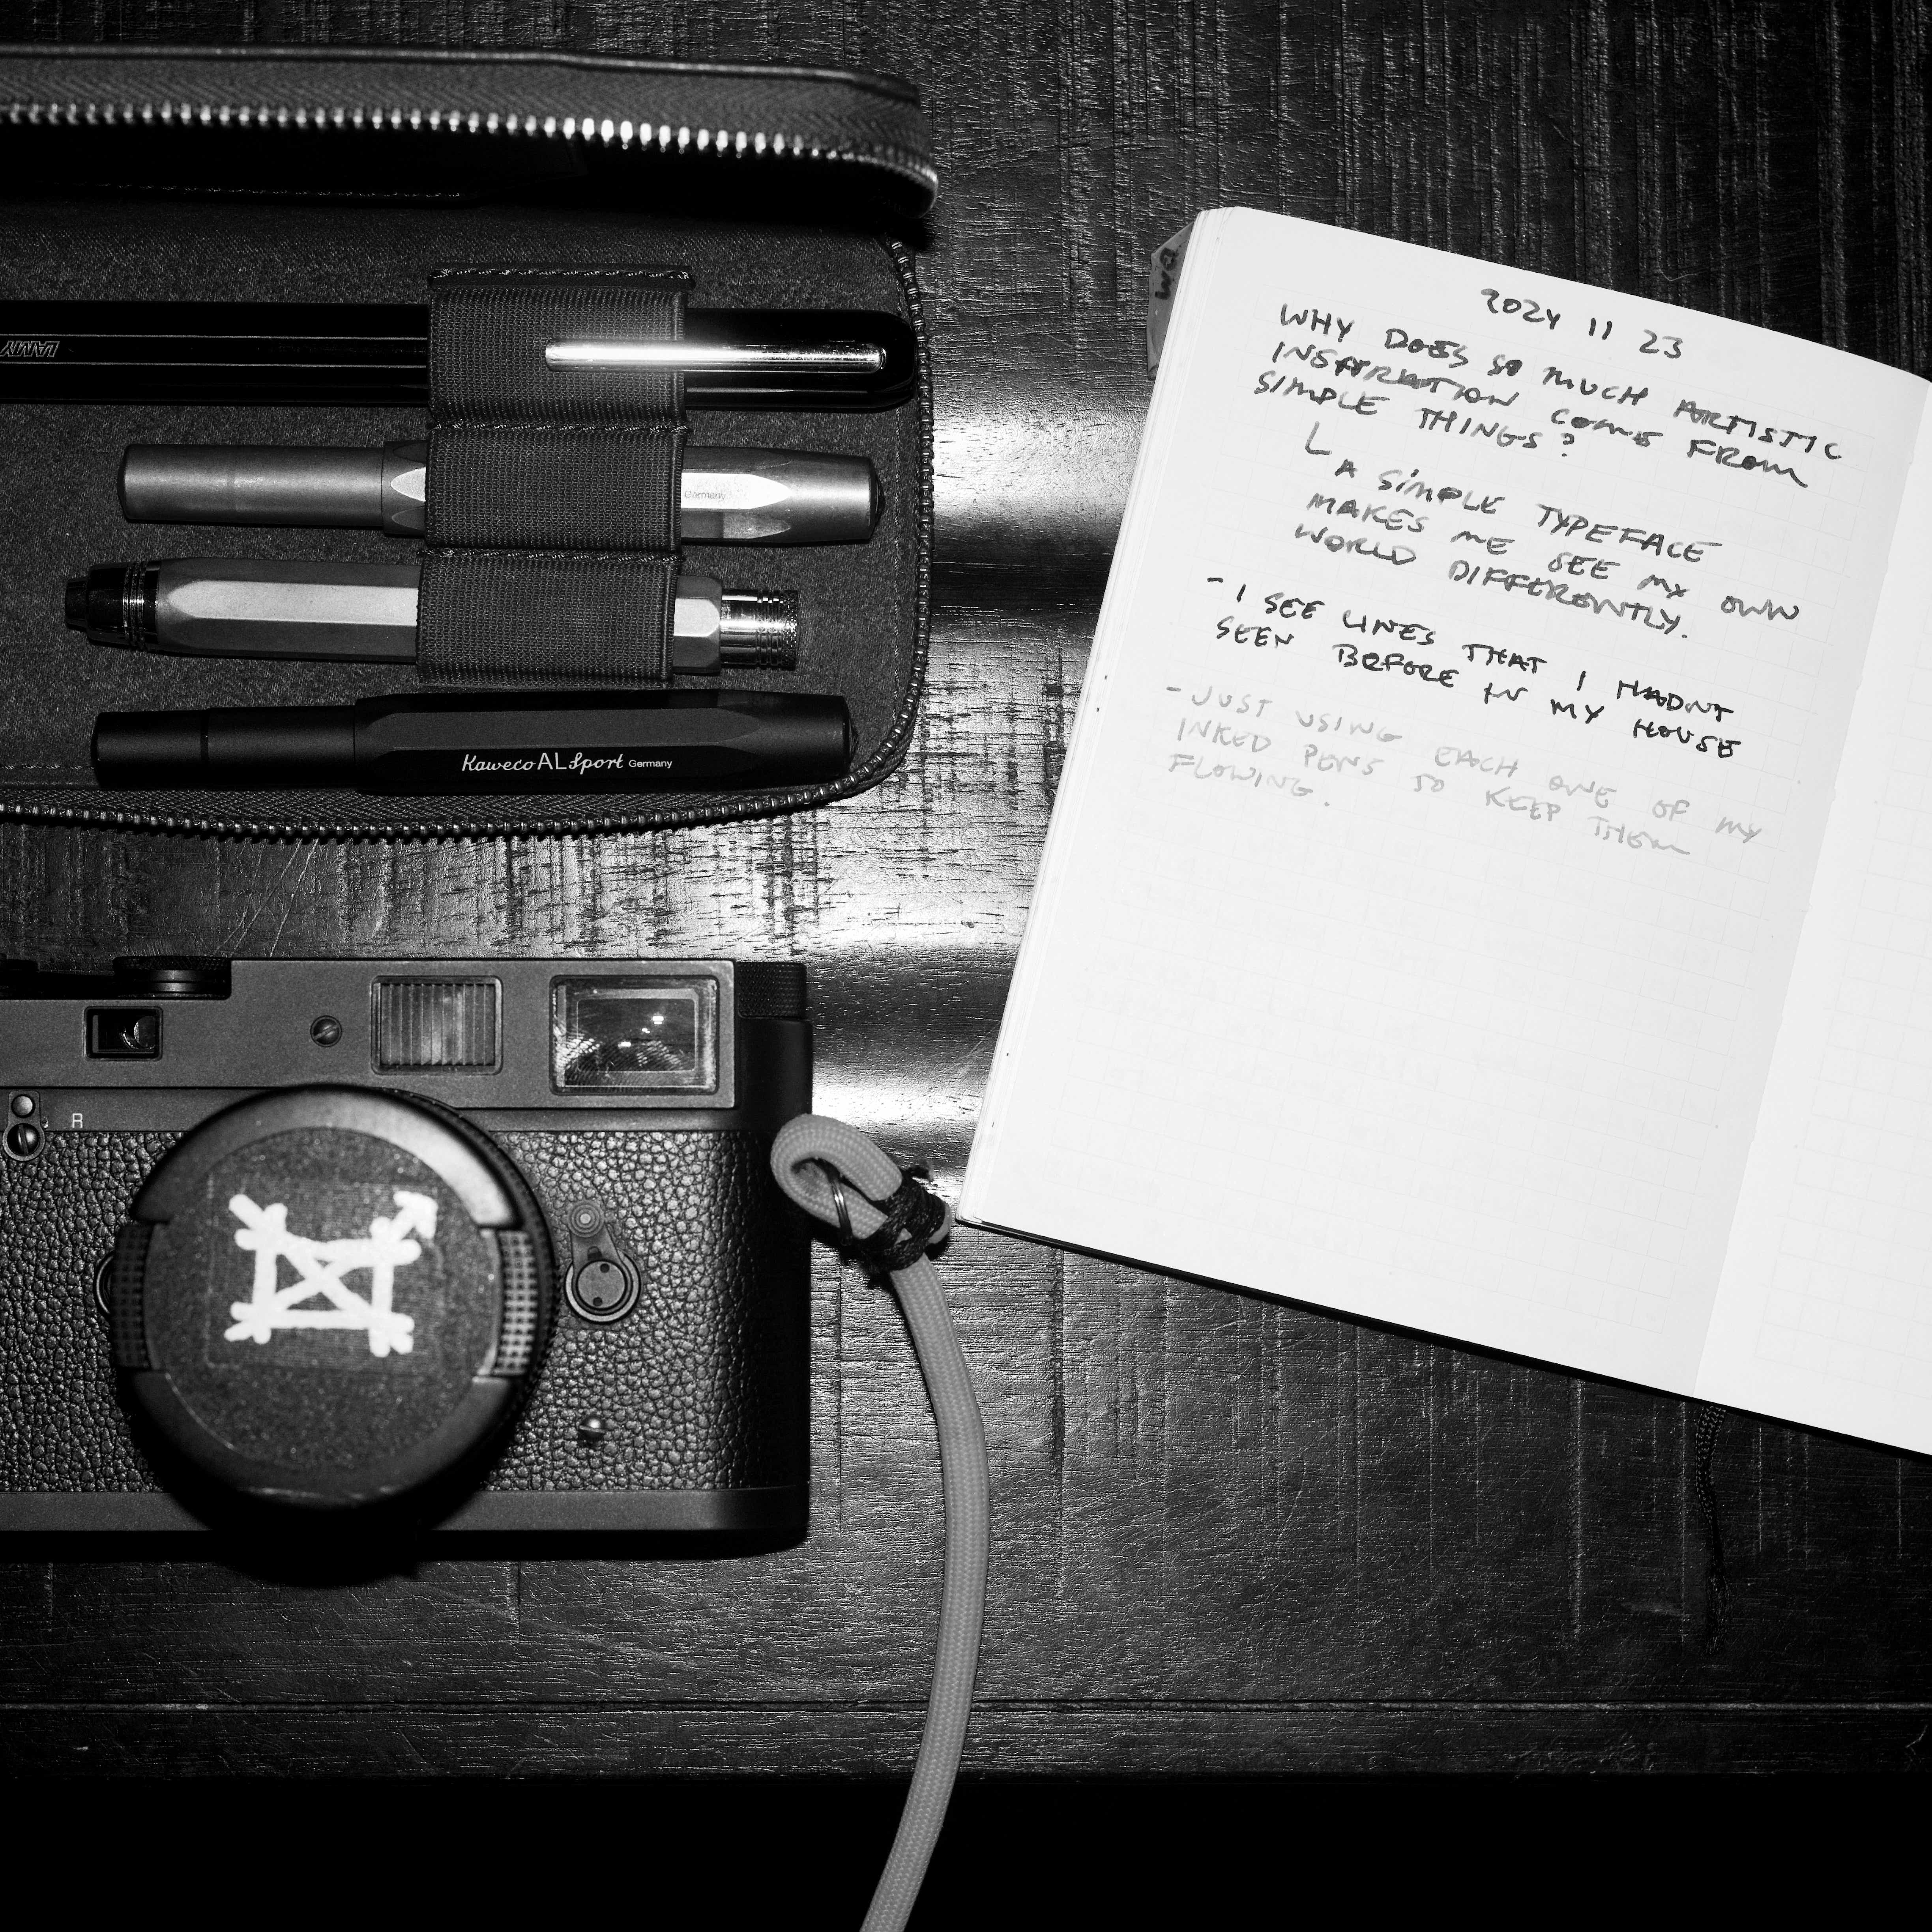 LAMY
Germany
Kaweco AL Sport Germany
R
2024 11 23
WHY DOES SO MUCH ARTISTIC
INSPIRATION COME FROM
SIMPLE THINGS?
A SIMPLE TYPEFACE
MAKES ME SEE MY OWN
WORLD DIFFERENTLY.
- I SEE LINES THAT I HADNT
SEEN BEFORE IN MY HOUSE
- JUST USING EACH ONE OF MY
INKED PENS TO KEEP THEM
FLOWING.